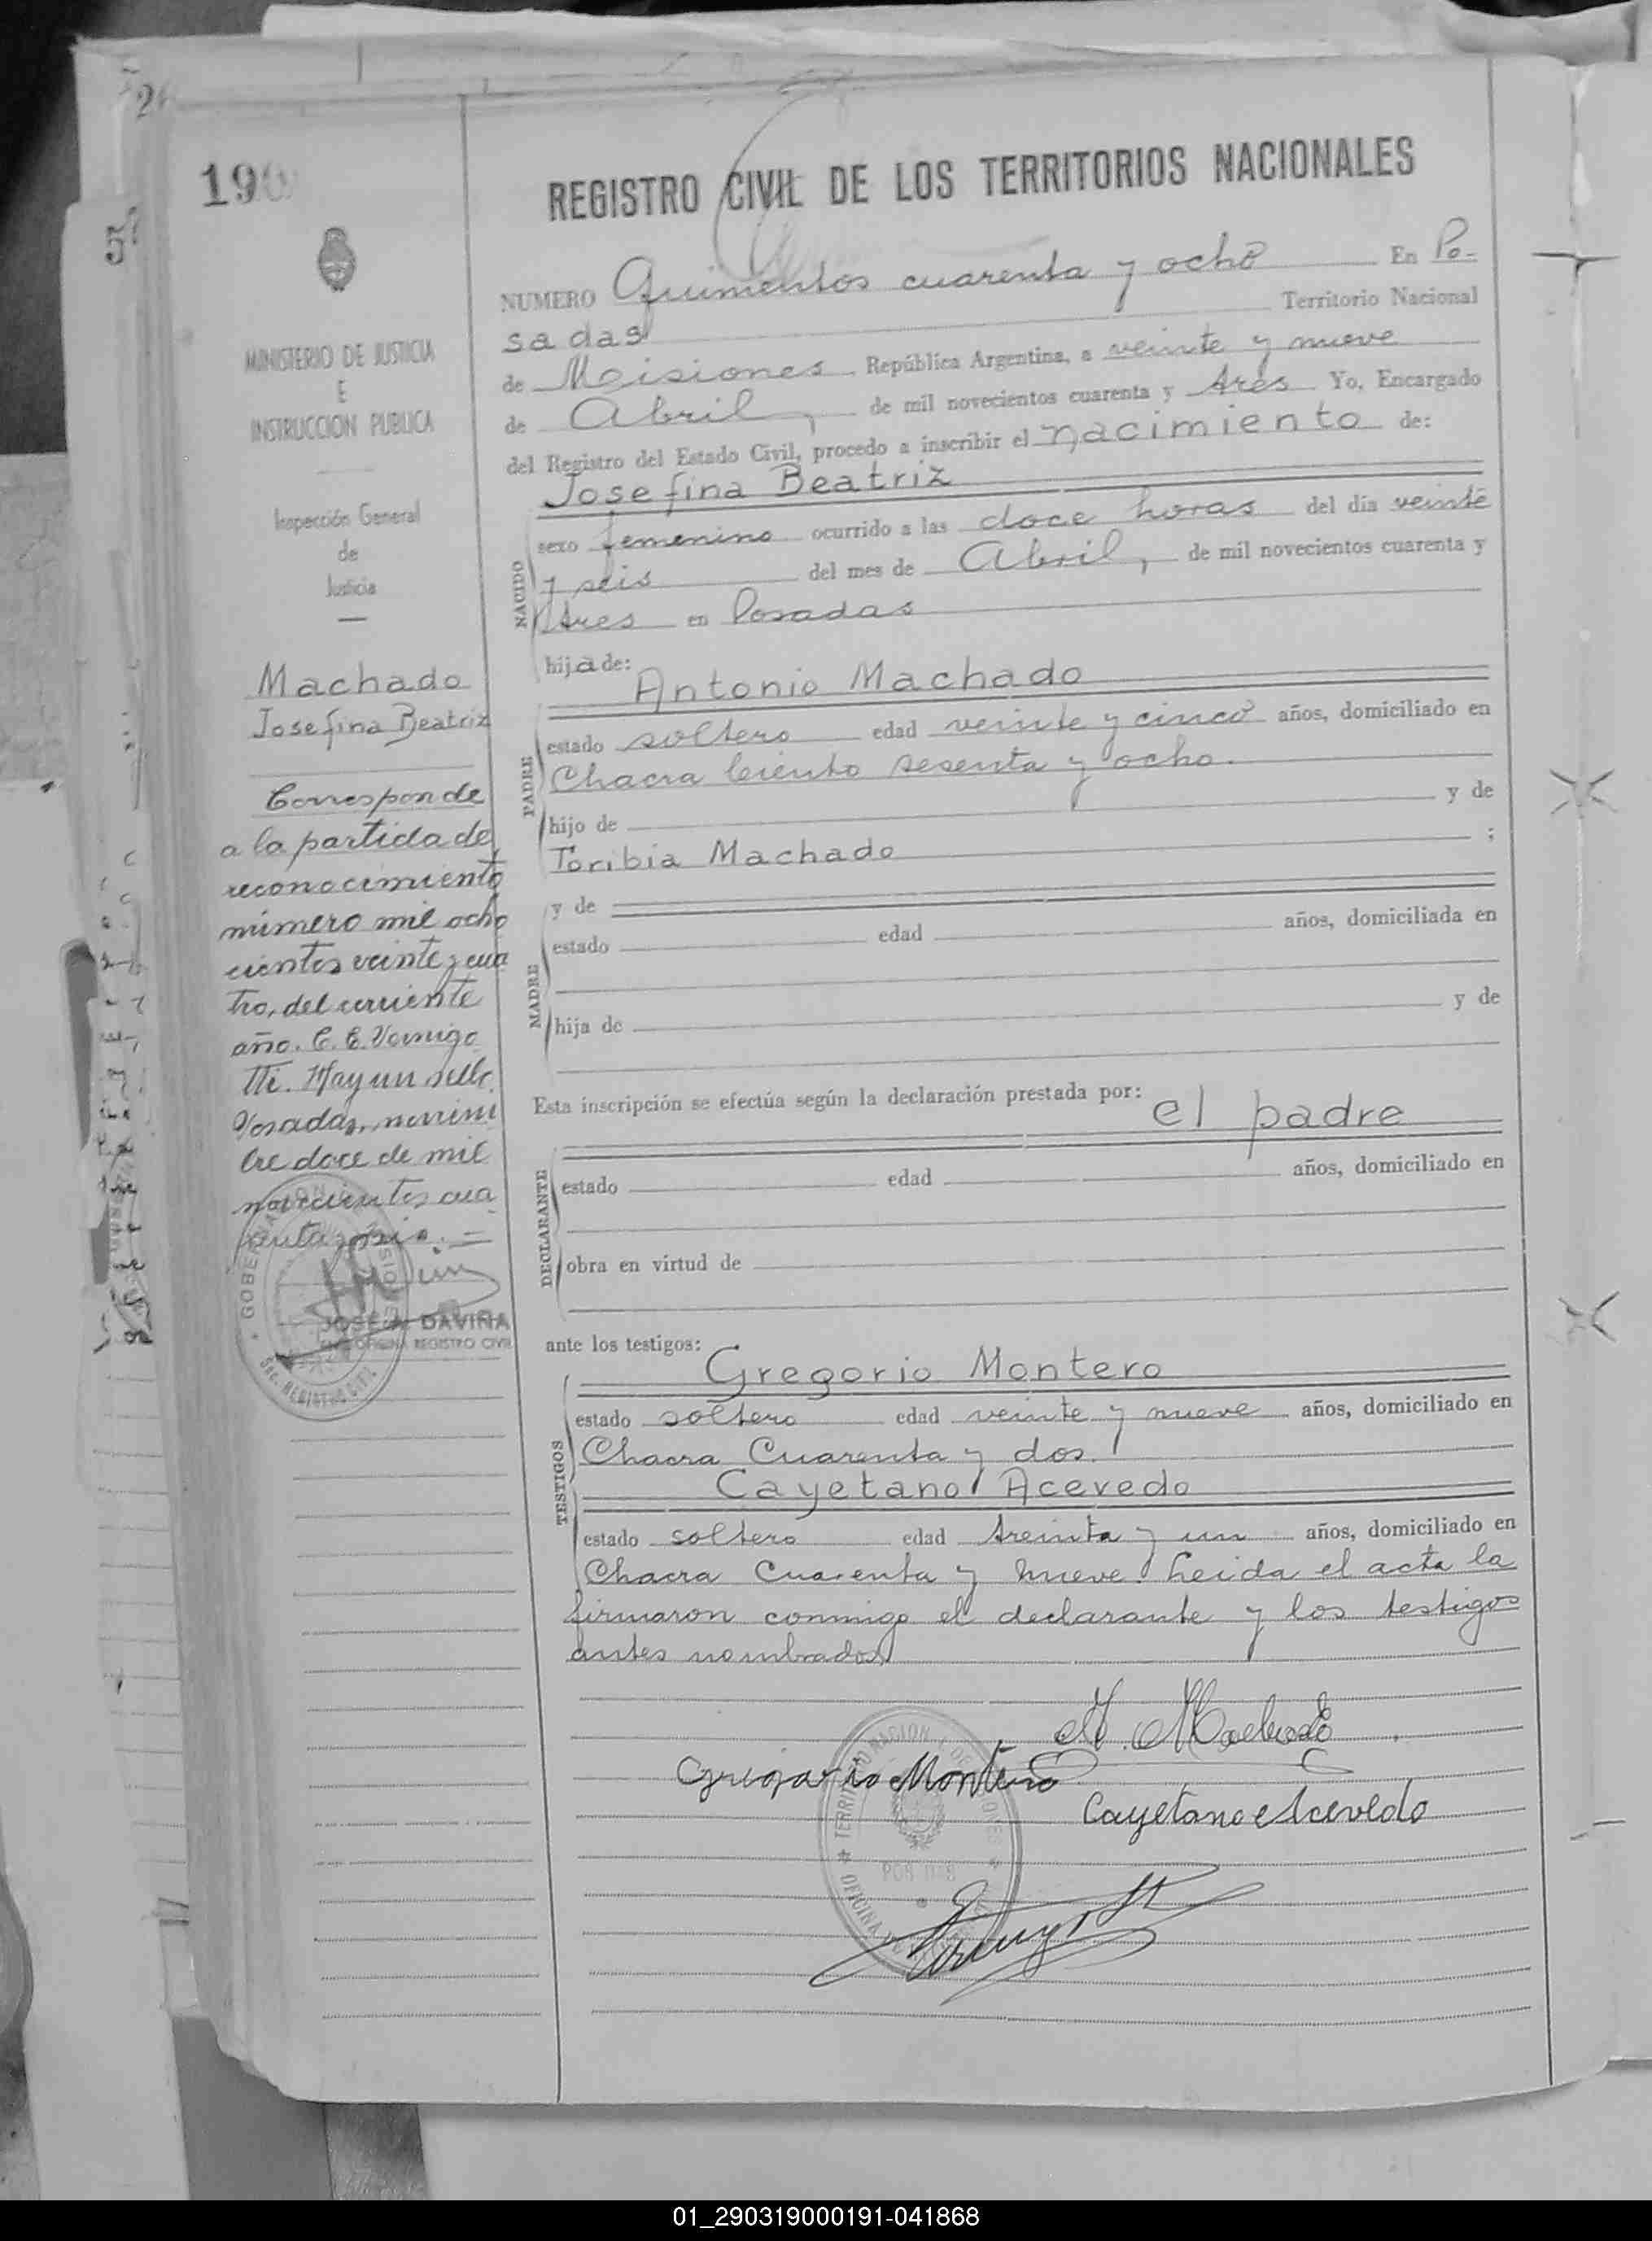 190
MINISTERIO DE JUSTICIA
E
INSTRUCCION PUBLICA
Inspección General
de
Justicia
Machado
Josefina Beatriz
Corresponde
a la partida de
reconocimiento
número mil ocho
cientos veinte y cua
tro, del corriente
año. C. E. Vernigo
tti. Hay un sello.
Posadas, noviem
bre doce de mil
novecientos cua
renta y seis. =
JOSE A. DAVIÑA
OFICINA REGISTRO CIVIL
REGISTRO CIVIL DE LOS TERRITORIOS NACIONALES
NUMERO Quinientos cuarenta y ocho En Po-
sadas Territorio Nacional
de Misiones República Argentina, a veinte y nueve
de Abril, de mil novecientos cuarenta y tres Yo, Encargado
del Registro del Estado Civil, procedo a inscribir el nacimiento de:
Josefina Beatriz
NACIDO
sexo femenino ocurrido a las doce horas del día veinte
y seis del mes de Abril, de mil novecientos cuarenta y
tres en Posadas
hija de:
Antonio Machado
PADRE
estado soltero edad veinte y cinco años, domiciliado en
Chacra Ciento sesenta y ocho.
hijo de y de
Toribia Machado ;
y de
MADRE
estado edad años, domiciliada en
hija de y de
Esta inscripción se efectúa según la declaración prestada por: el padre
DECLARANTE
estado edad años, domiciliado en
obra en virtud de
ante los testigos:
Gregorio Montero
TESTIGOS
estado soltero edad veinte y nueve años, domiciliado en
Chacra Cuarenta y dos.
Cayetano Acevedo
estado soltero edad treinta y un años, domiciliado en
Chacra Cuarenta y nueve. Leida el acta la
firmaron conmigo el declarante y los testigos
antes nombrados
A. Machado
Grigorio Montero
Cayetano Acevedo
01_290319000191-041868